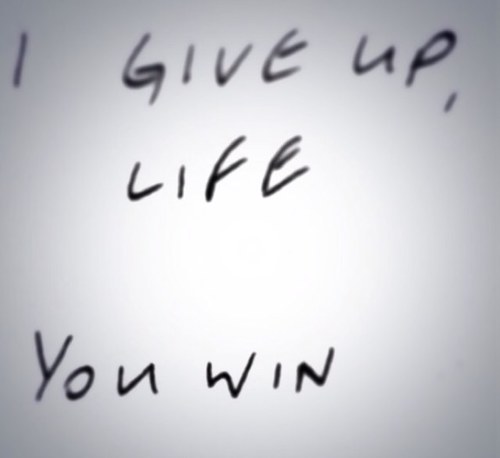 I GIVE UP,
LIFE
YOU WIN